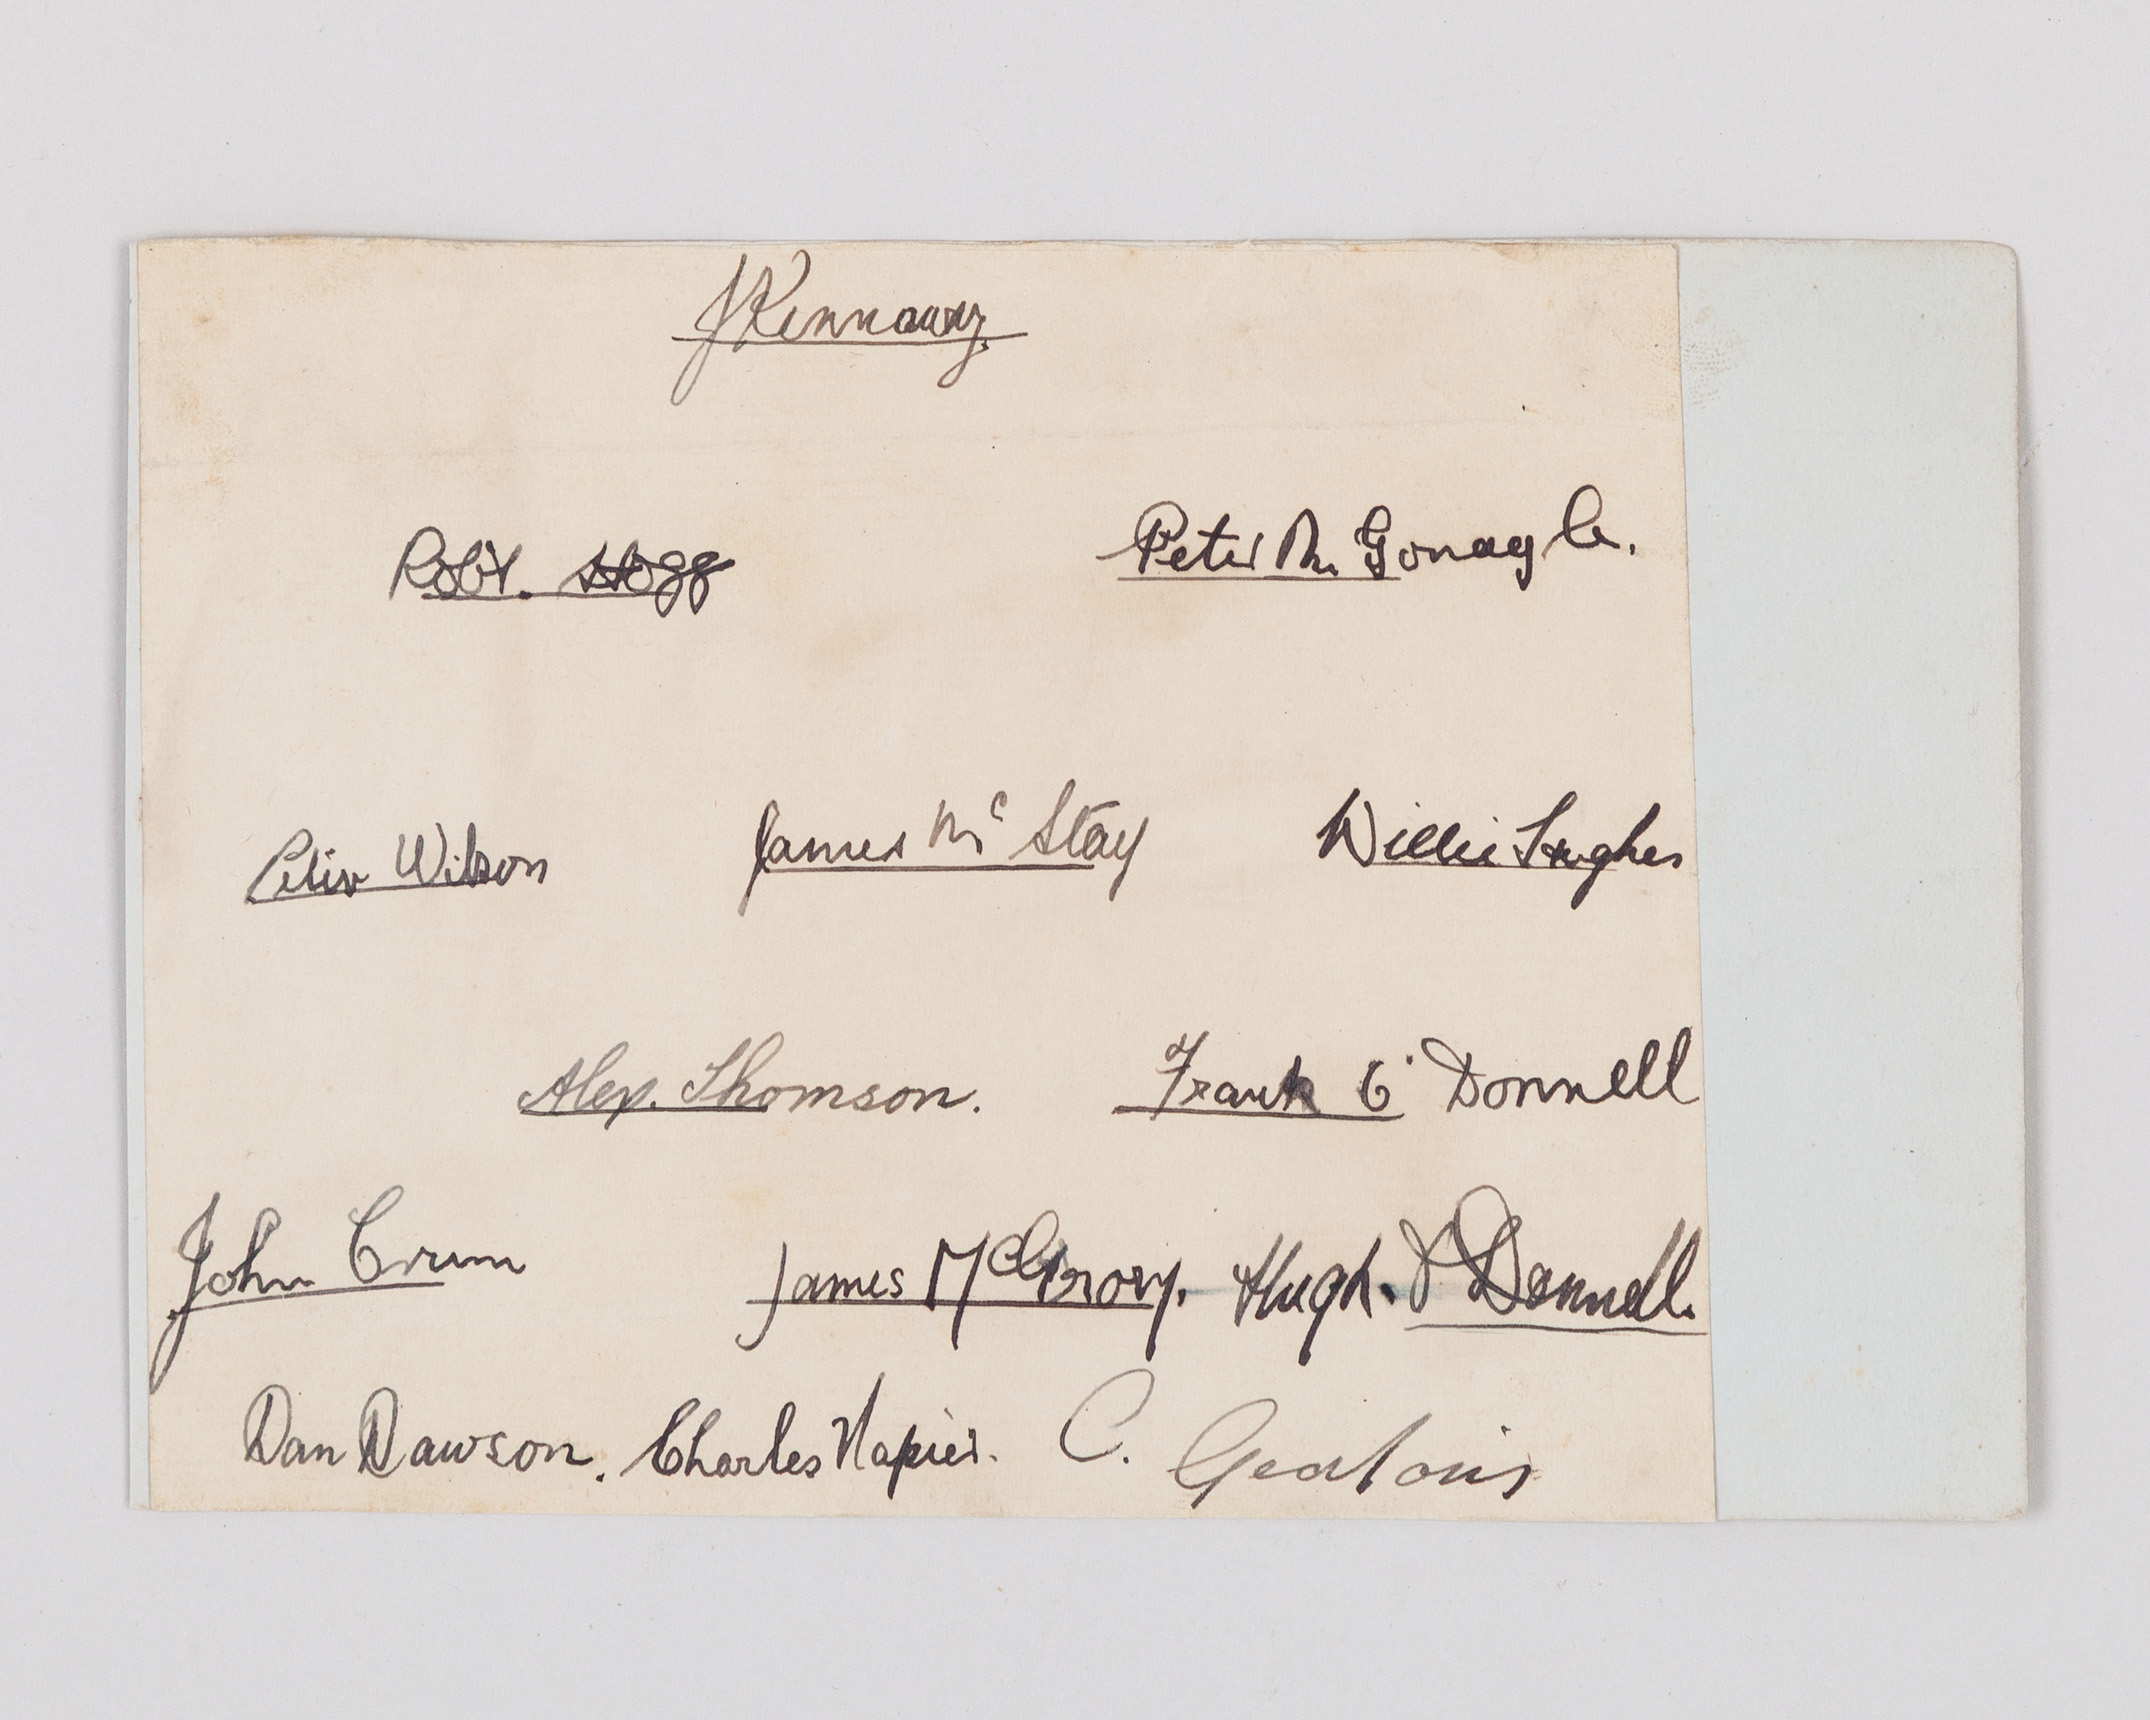 J Kennaway
Robt. Hogg Peter Mc Gonagle.
Peter Wilson James Mc Stay Willie Hughes
Alex. Thomson. Frank O'Donnell
John Crum James McGrory. Hugh. O'Donnell.
Dan Dawson. Charles Napier. C. Geatons